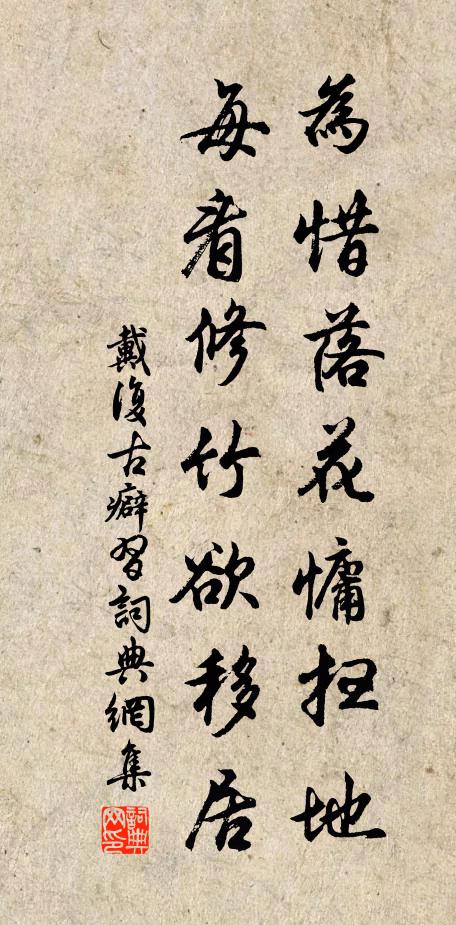 為惜落花慵扫地
每看修竹欲移居
戴復古癖習詞典網集
詞典网印